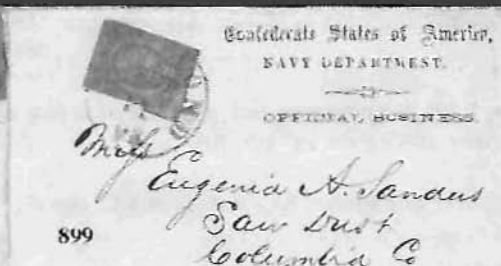 Confederate States of America,
NAVY DEPARTMENT.
OFFICIAL BUSINESS.
Miss
Eugenia A. Sanders
Saw Dust
Columbia Co
899